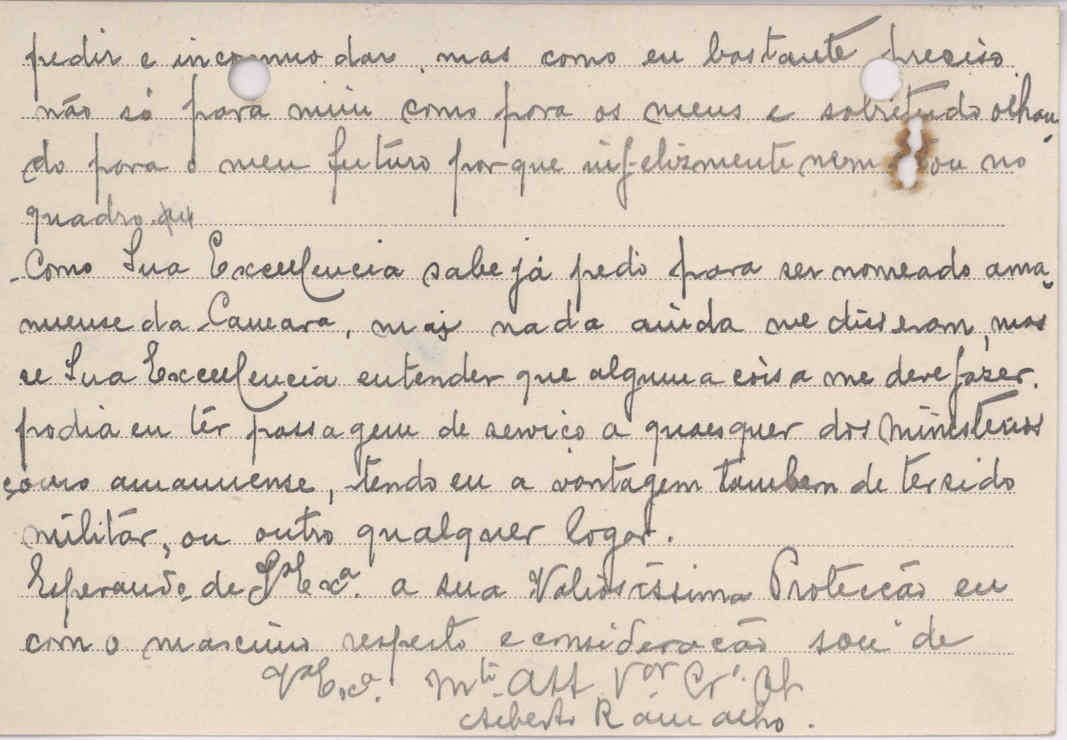 pedir e incommodar, mas como eu bastante preciso
não só para mim como para os meus e sobretudo olhan-
do para o meu futuro porque infelizmente nem sou no
quadro.
Como Sua Excellencia sabe já pedi para ser nomeado ama-
nuense da Camara, mas nada ainda me disseram, mas
se Sua Excellencia entender que alguma coisa me deve fazer.
podia eu têr passagem de serviço a quaesquer dos ministerios
como amanuense, tendo eu a vantagem tambem de ter sido
militár, ou outro qualquer logar.
Esperando de Vª Exª. a sua Valiosíssima Protecção eu
com o maximo respeito e consideração sou de
Vª Exª. Mtº Att Vor Crº. Obº
Alberto Ramalho.